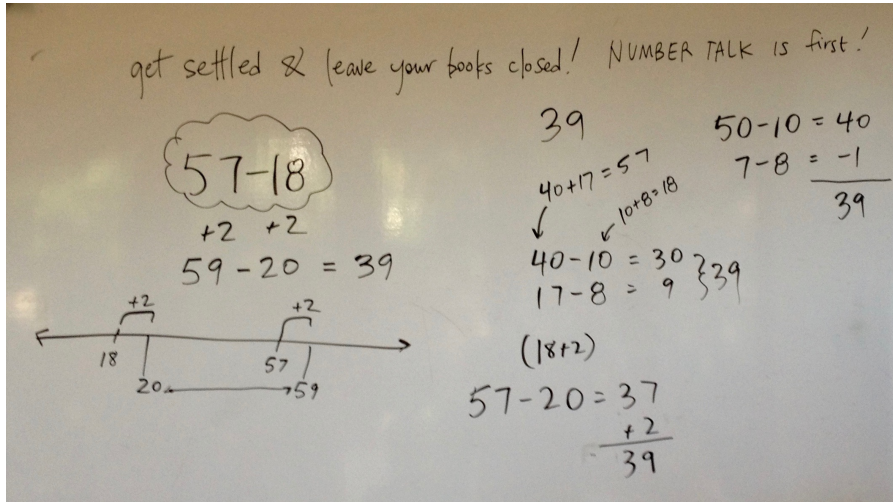 get settled & leave your books closed! NUMBER TALK is first!
57-18
+2 +2
59-20 = 39
+2 +2
18 57
20 59
39
40+17=57
10+8=18
40-10 = 30
17-8 = 9 } 39
(18+2)
57-20=37
+2
39
50-10=40
7-8 = -1
39